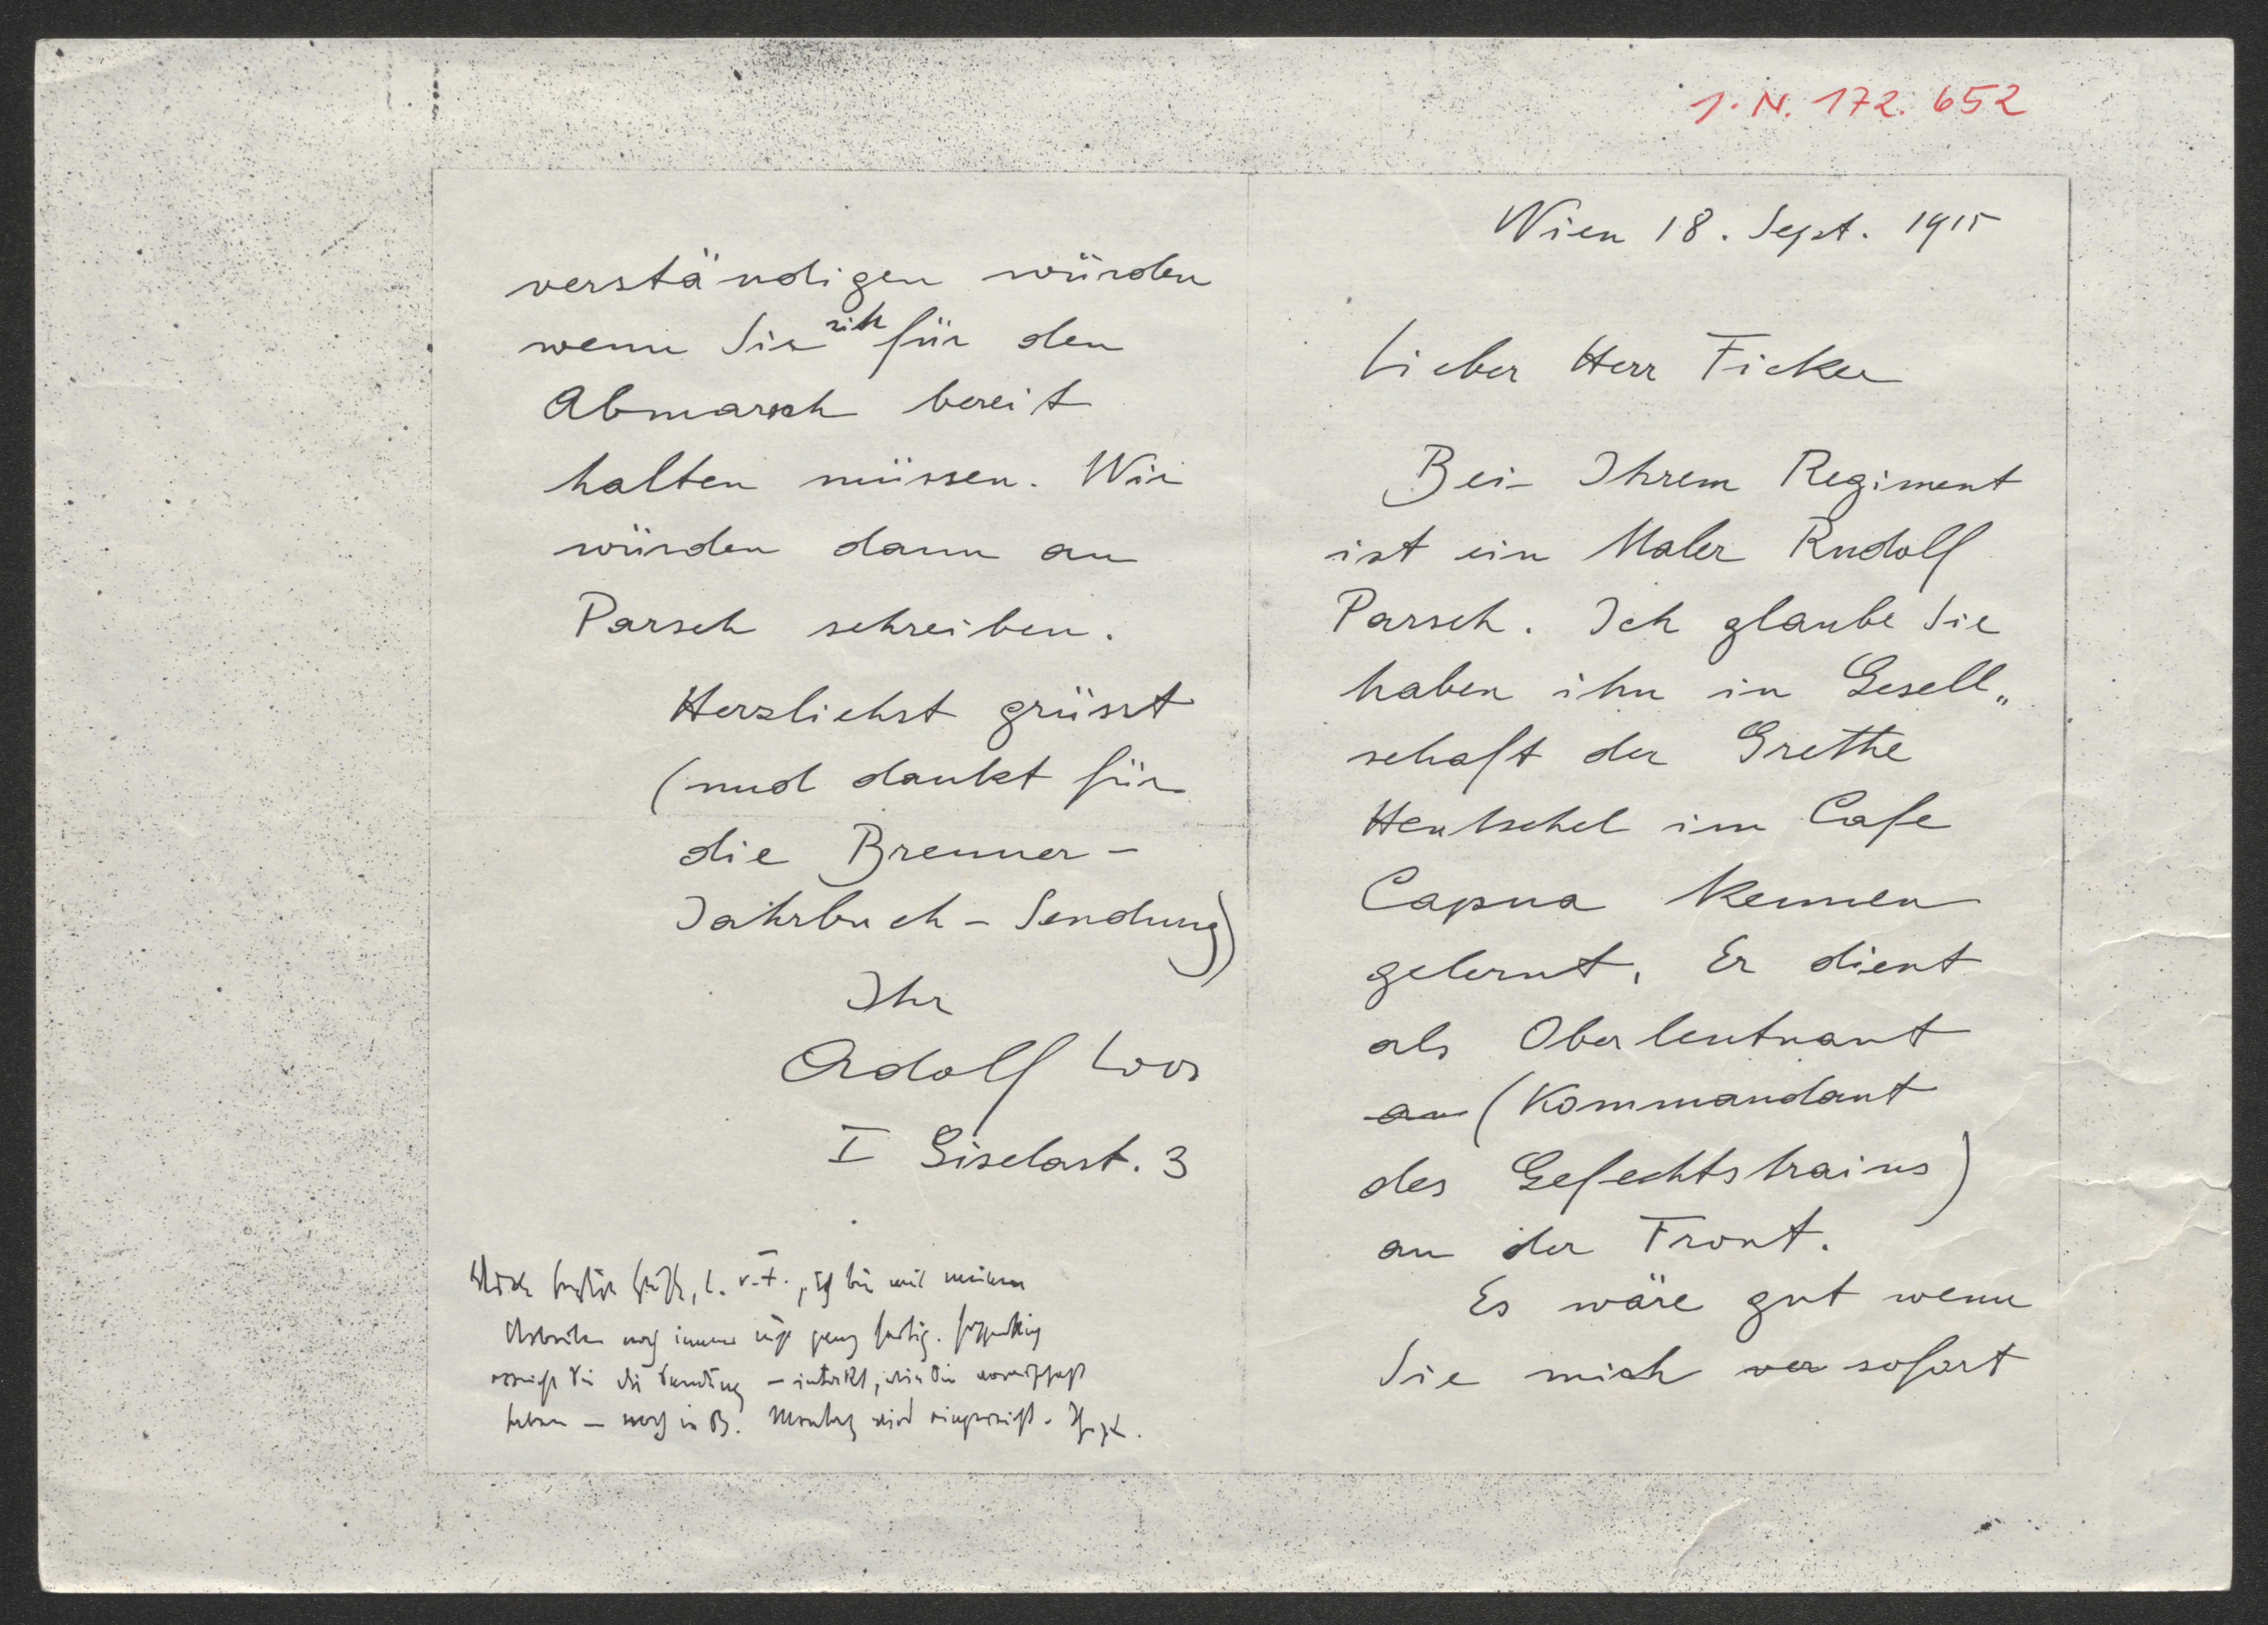 1. N. 172. 652
Wien 18. Sept. 1915
Lieber Herr Ficker
Bei Ihrem Regiment
ist ein Maler Rudolf
Parsch. Ich glaube Sie
haben ihn in Gesell„
schaft der Grethe
Hentschel im Cafe
Capua kennen
gelernt. Er dient
als Oberleutnant
an (Kommandant
des Gefechtstrains)
an der Front.
Es wäre gut wenn
Sie mich ver sofort
verständigen würden
wenn Sie sich für den
Abmarsch bereit
halten müssen. Wir
würden dann an
Parsch schreiben.
Herzlichst grüsst
(und dankt für
die Brenner-
Jahrbuch-Sendung)
Ihr
Adolf Loos
I Giselast. 3
l. v. F., ich bin mit meinen
noch immer nicht ganz fertig.
Sie die Sendung – intakt, wie Sie
haben – noch in B. Montag wird